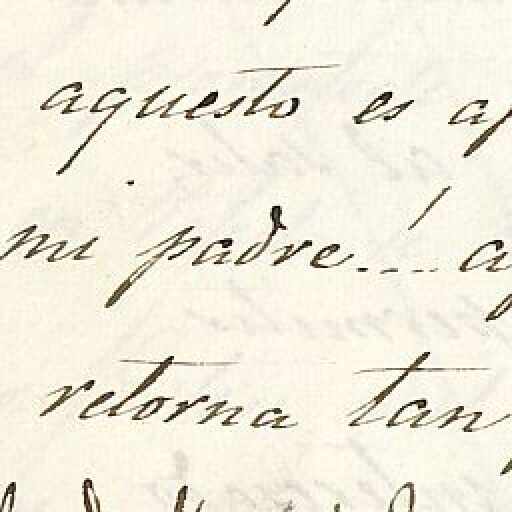 aquesto es
mi padre..!...
retorna tan